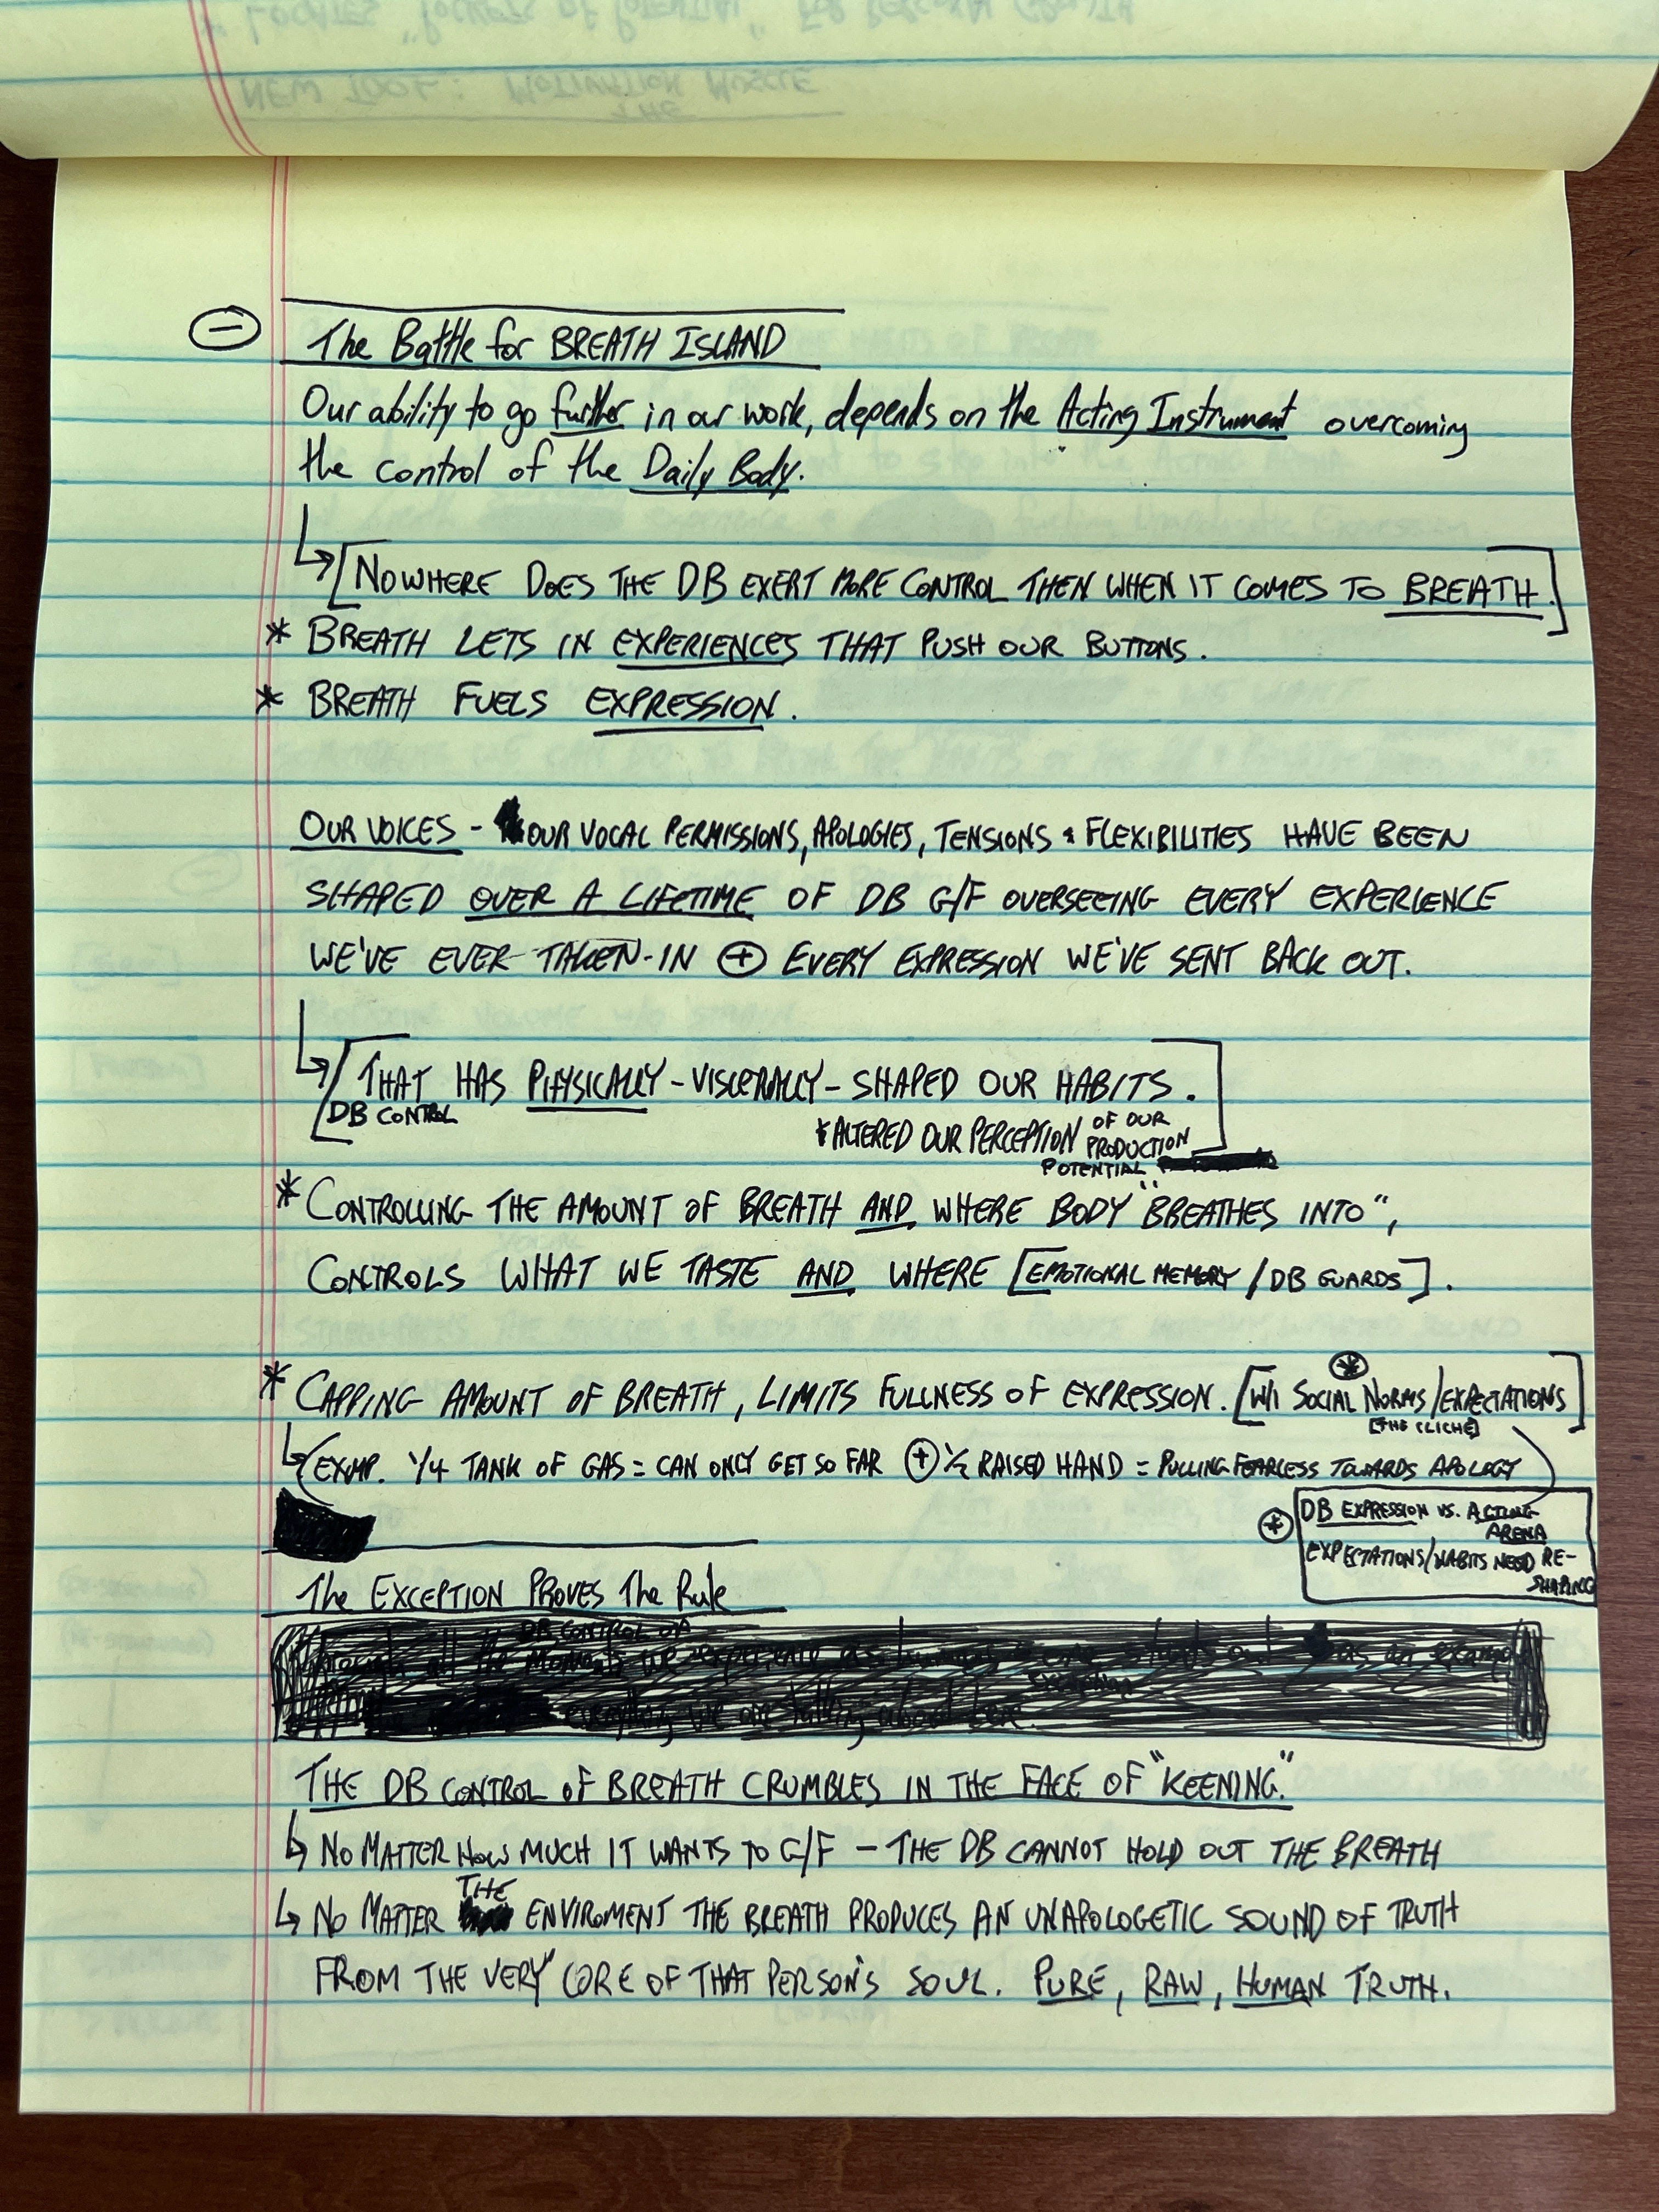 NEW TOOL: THE MOTIVATION MUSCLE
The Battle for BREATH ISLAND
Our ability to go further in our work, depends on the Acting Instrument overcoming
the control of the Daily Body.
[NOWHERE DOES THE DB EXERT MORE CONTROL THEN WHEN IT COMES TO BREATH.]
* BREATH LETS IN EXPERIENCES THAT PUSH OUR BUTTONS.
* BREATH FUELS EXPRESSION.
OUR VOICES - OUR VOCAL PERMISSIONS, APOLOGIES, TENSIONS & FLEXIBILITIES HAVE BEEN
SHAPED OVER A LIFETIME OF DB G/F OVERSEEING EVERY EXPERIENCE
WE'VE EVER TAKEN-IN + EVERY EXPRESSION WE'VE SENT BACK OUT.
[THAT HAS PHYSICALLY-VISCERALLY-SHAPED OUR HABITS.
DB CONTROL
* ALTERED OUR PERCEPTION OF OUR PRODUCTION POTENTIAL]
* CONTROLLING THE AMOUNT OF BREATH AND WHERE BODY "BREATHES INTO",
CONTROLS WHAT WE TASTE AND WHERE [EMOTIONAL MEMORY/DB GUARDS].
* CAPPING AMOUNT OF BREATH, LIMITS FULLNESS OF EXPRESSION. [W/I SOCIAL NORMS/EXPECTATIONS]
[THE CLICHE]
EXMP. 1/4 TANK OF GAS = CAN ONLY GET SO FAR + 1/2 RAISED HAND = PULLING FEARLESS TOWARDS APOLOGY
* DB EXPRESSION VS. ACTING
ARENA
EXPECTATIONS/HABITS NEED RE-
SHAPING
The EXCEPTION PROVES The Rule
THE DB CONTROL OF BREATH CRUMBLES IN THE FACE OF "KEENING."
NO MATTER HOW MUCH IT WANTS TO G/F - THE DB CANNOT HOLD OUT THE BREATH
NO MATTER THE ENVIROMENT THE BREATH PRODUCES AN UNAPOLOGETIC SOUND OF TRUTH
FROM THE VERY CORE OF THAT PERSON'S SOUL. PURE, RAW, HUMAN TRUTH.